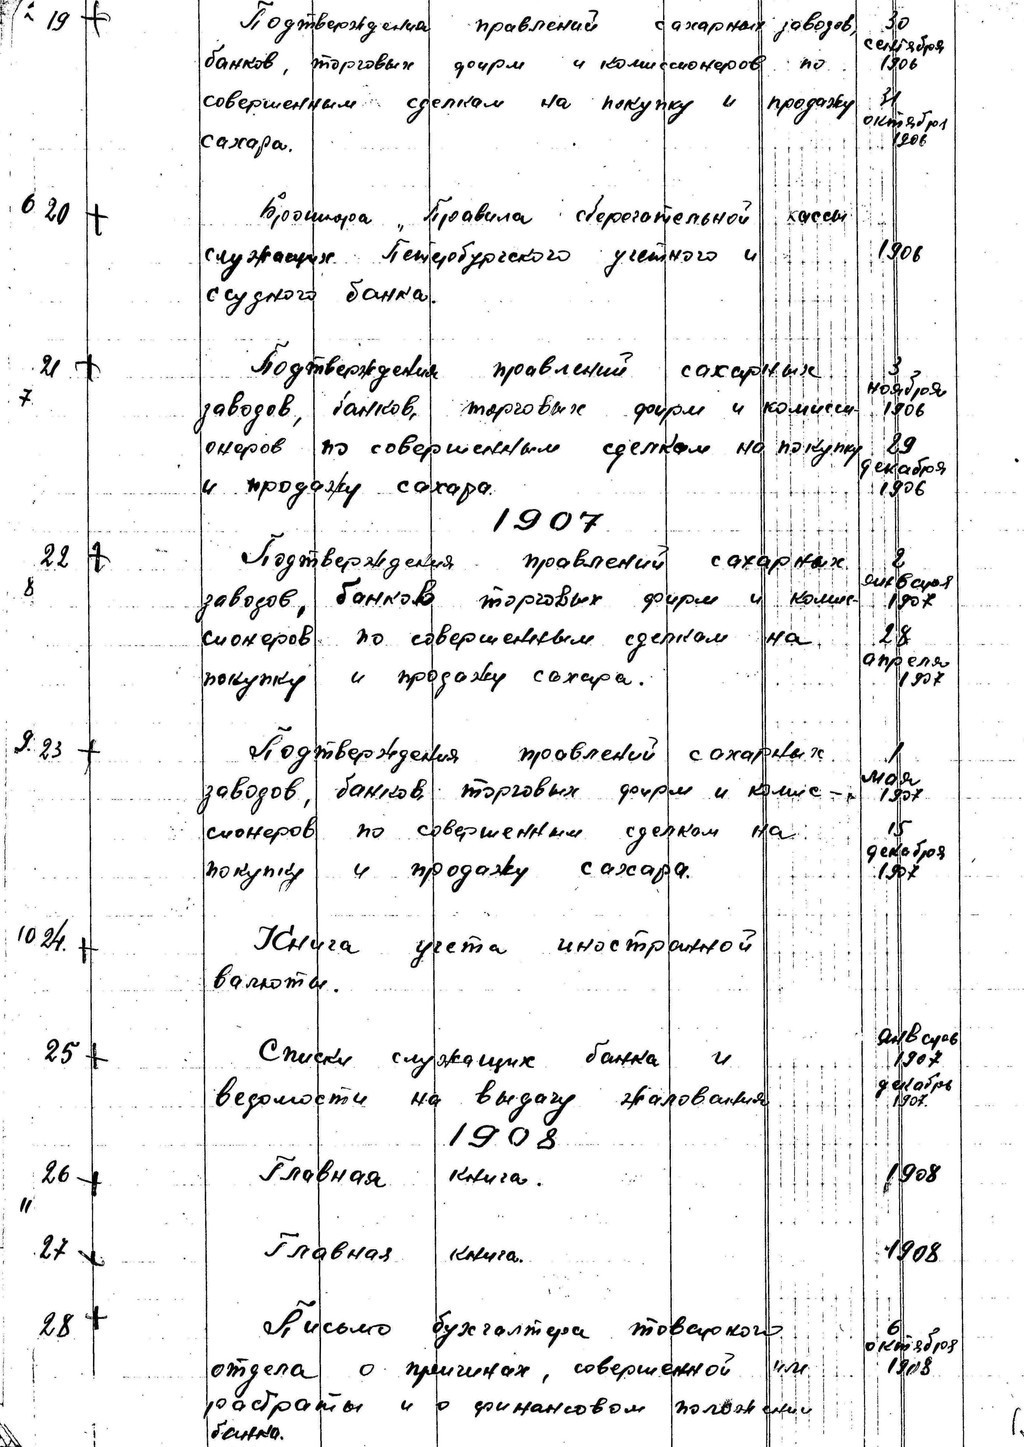 19 Подтверждения правлений сахарных заводов, 30 сентября 1906
банков, торговых фирм и комиссионеров по
совершенным сделкам на покупку и продажу 31 октября 1906
сахара.
6 20 Брошюра „Правила сберегательной кассы
служащих Петербургского учетного и 1906
ссудного банка.
21 Подтверждения правлений сахарных 3 ноября 1906
7 заводов, банков, торговых фирм и комисси-
онеров по совершенным сделкам на покупку 29 декабря 1906
и продажу сахара.
1907
22 Подтверждения правлений сахарных 2 января 1907
8 заводов, банков торговых фирм и комис-
сионеров по совершенным сделкам на 28 апреля 1907
покупку и продажу сахара.
9. 23 Подтверждения правлений сахарных 1 мая 1907
заводов, банков, торговых фирм и комис-
сионеров по совершенным сделкам на 15 декабря 1907
покупку и продажу сахара.
10 24. Книга учета иностранной
валюты.
25 Списки служащих банка и январь 1907
ведомости на выдачу жалования декабрь 1907.
1908
26 Главная книга. 1908
11
27 Главная книга. 1908
28 Письмо бухгалтера товарного 6 октября 1908
отдела о причинах, совершенной им
растраты и о финансовом положении
банка.